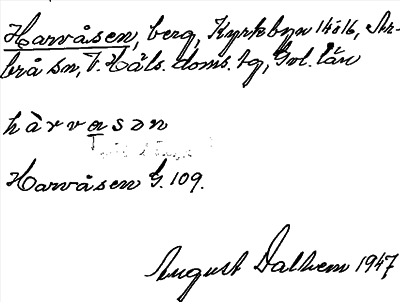 Harvåsen, berg, Kyrkbyn 14 o 16, År-
brå sn, V. Häls. doms. tg, Gvl. län
hàrvasən
Harvåsen G. 109.
August Dalhem 1947